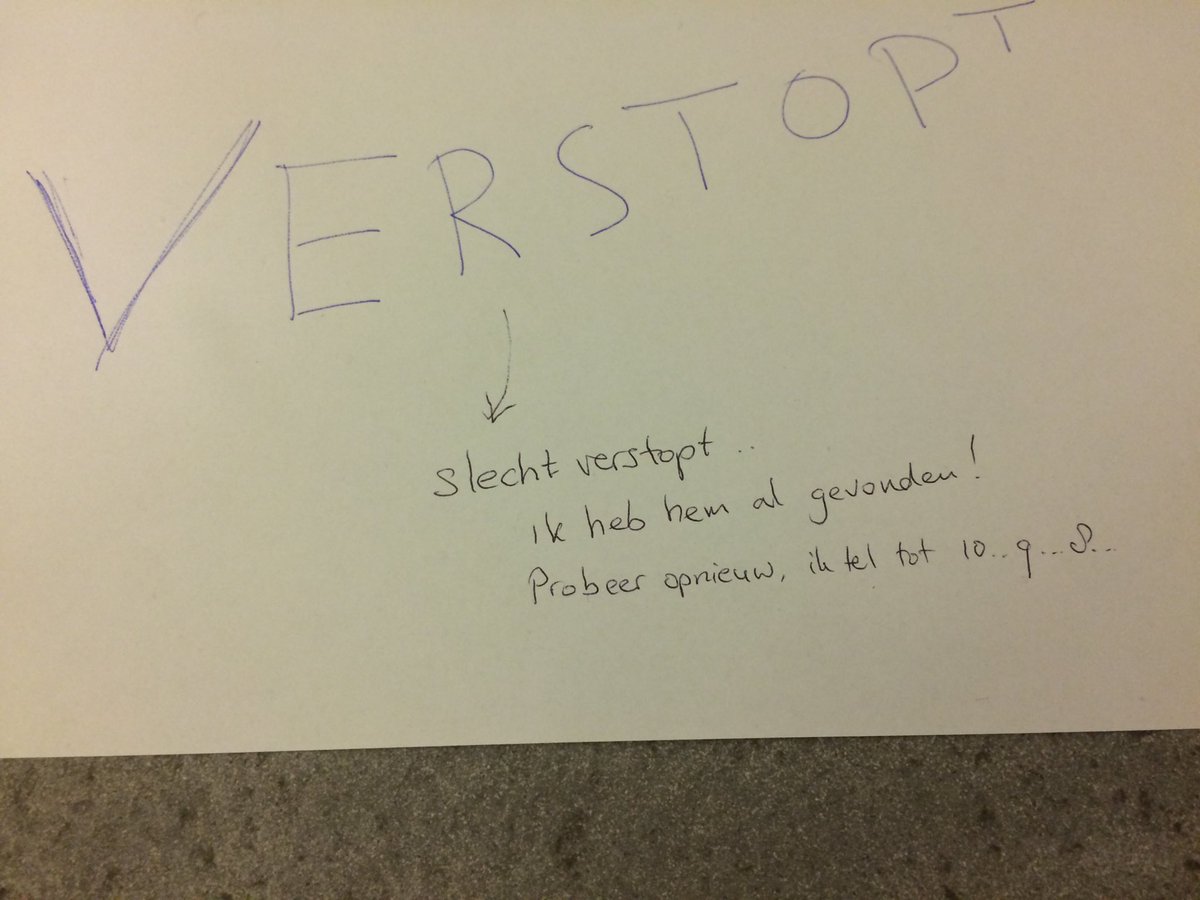 VERSTOPT
slecht verstopt..
ik heb hem al gevonden!
Probeer opnieuw, ik tel tot 10...9...8...